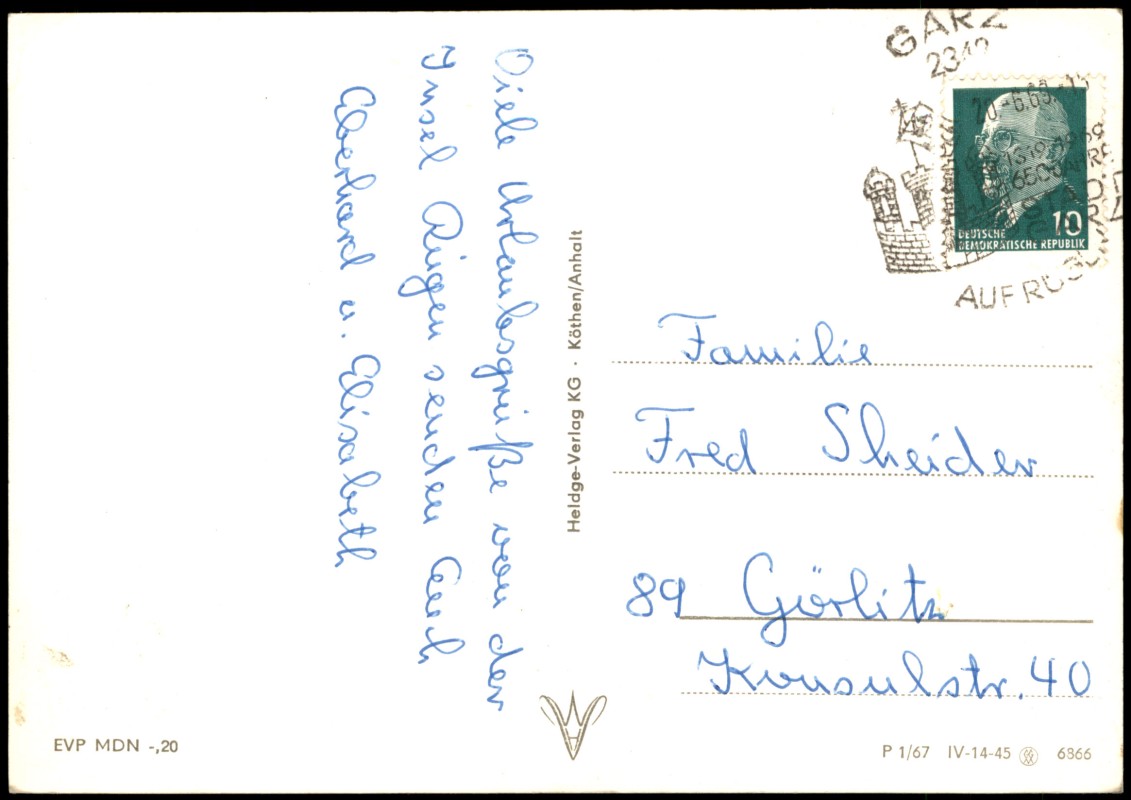 Viele Urlaubsgrüße von der
Insel Rügen senden Euch
Eberhard u. Elisabeth
Heldge-Verlag KG · Köthen/Anhalt
GARZ
2342
20.-6.69.-15
650 JAHRE
STADT
AUF RÜGEN
10
DEUTSCHE
DEMOKRATISCHE REPUBLIK
Familie
Fred Sheider
89 Görlitz
Konsulstr. 40
EVP MDN -,20
P 1/67 IV-14-45 6866